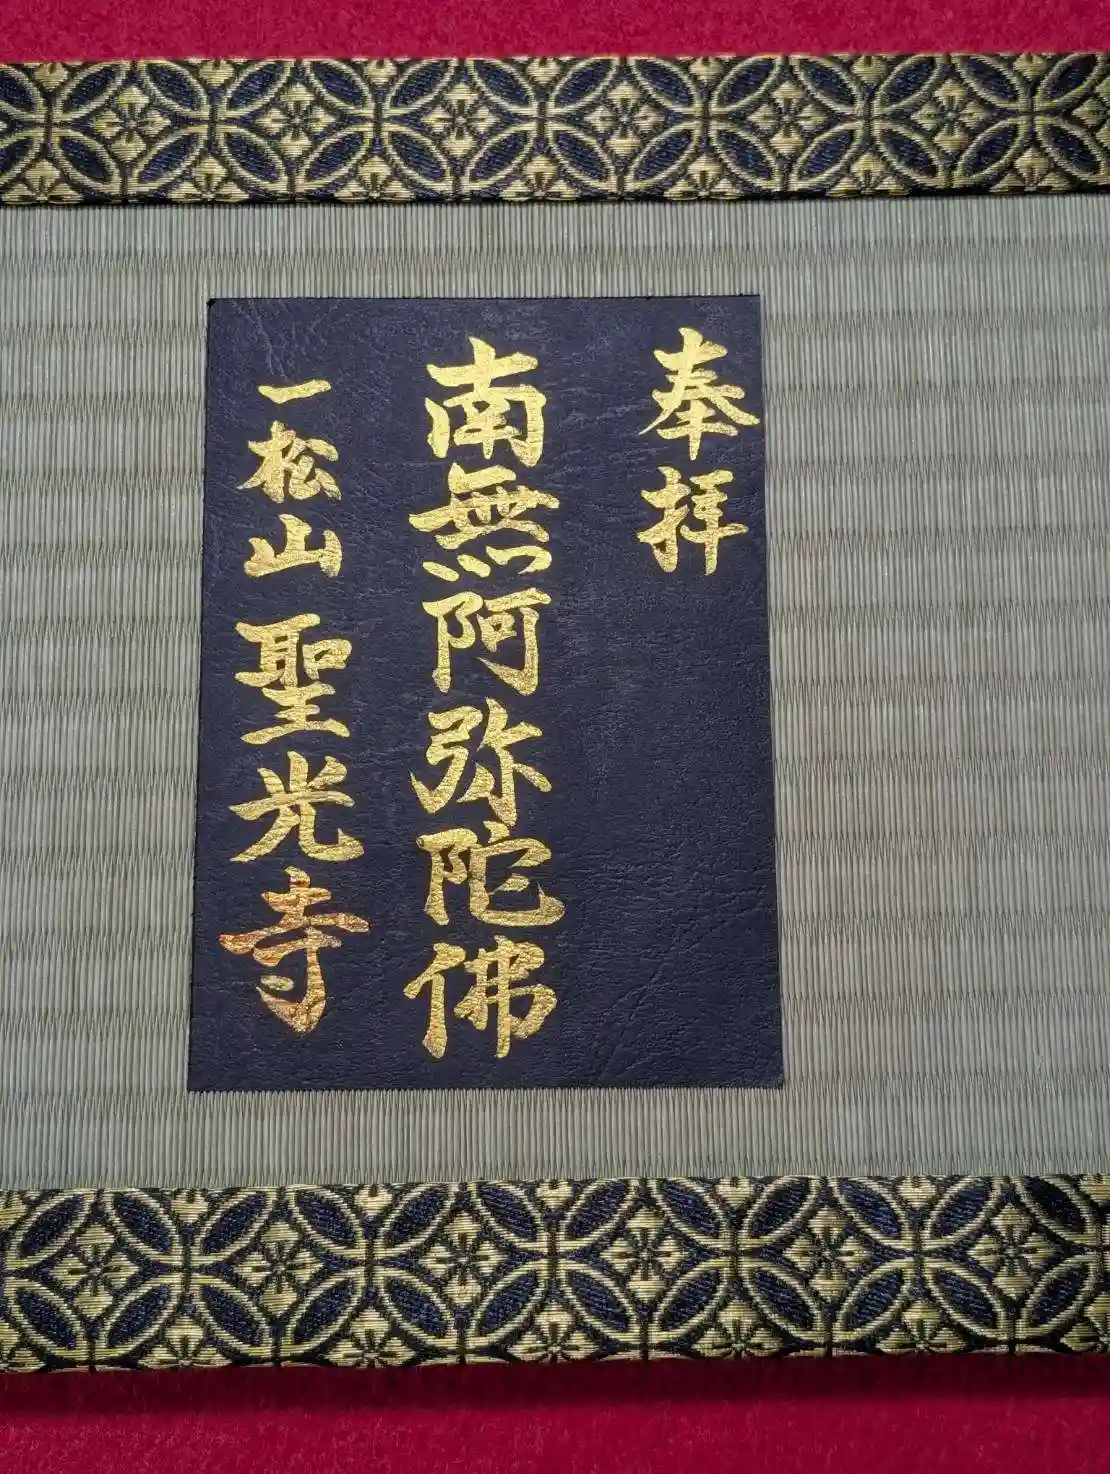 奉拝
南無阿弥陀佛
一松山 聖光寺